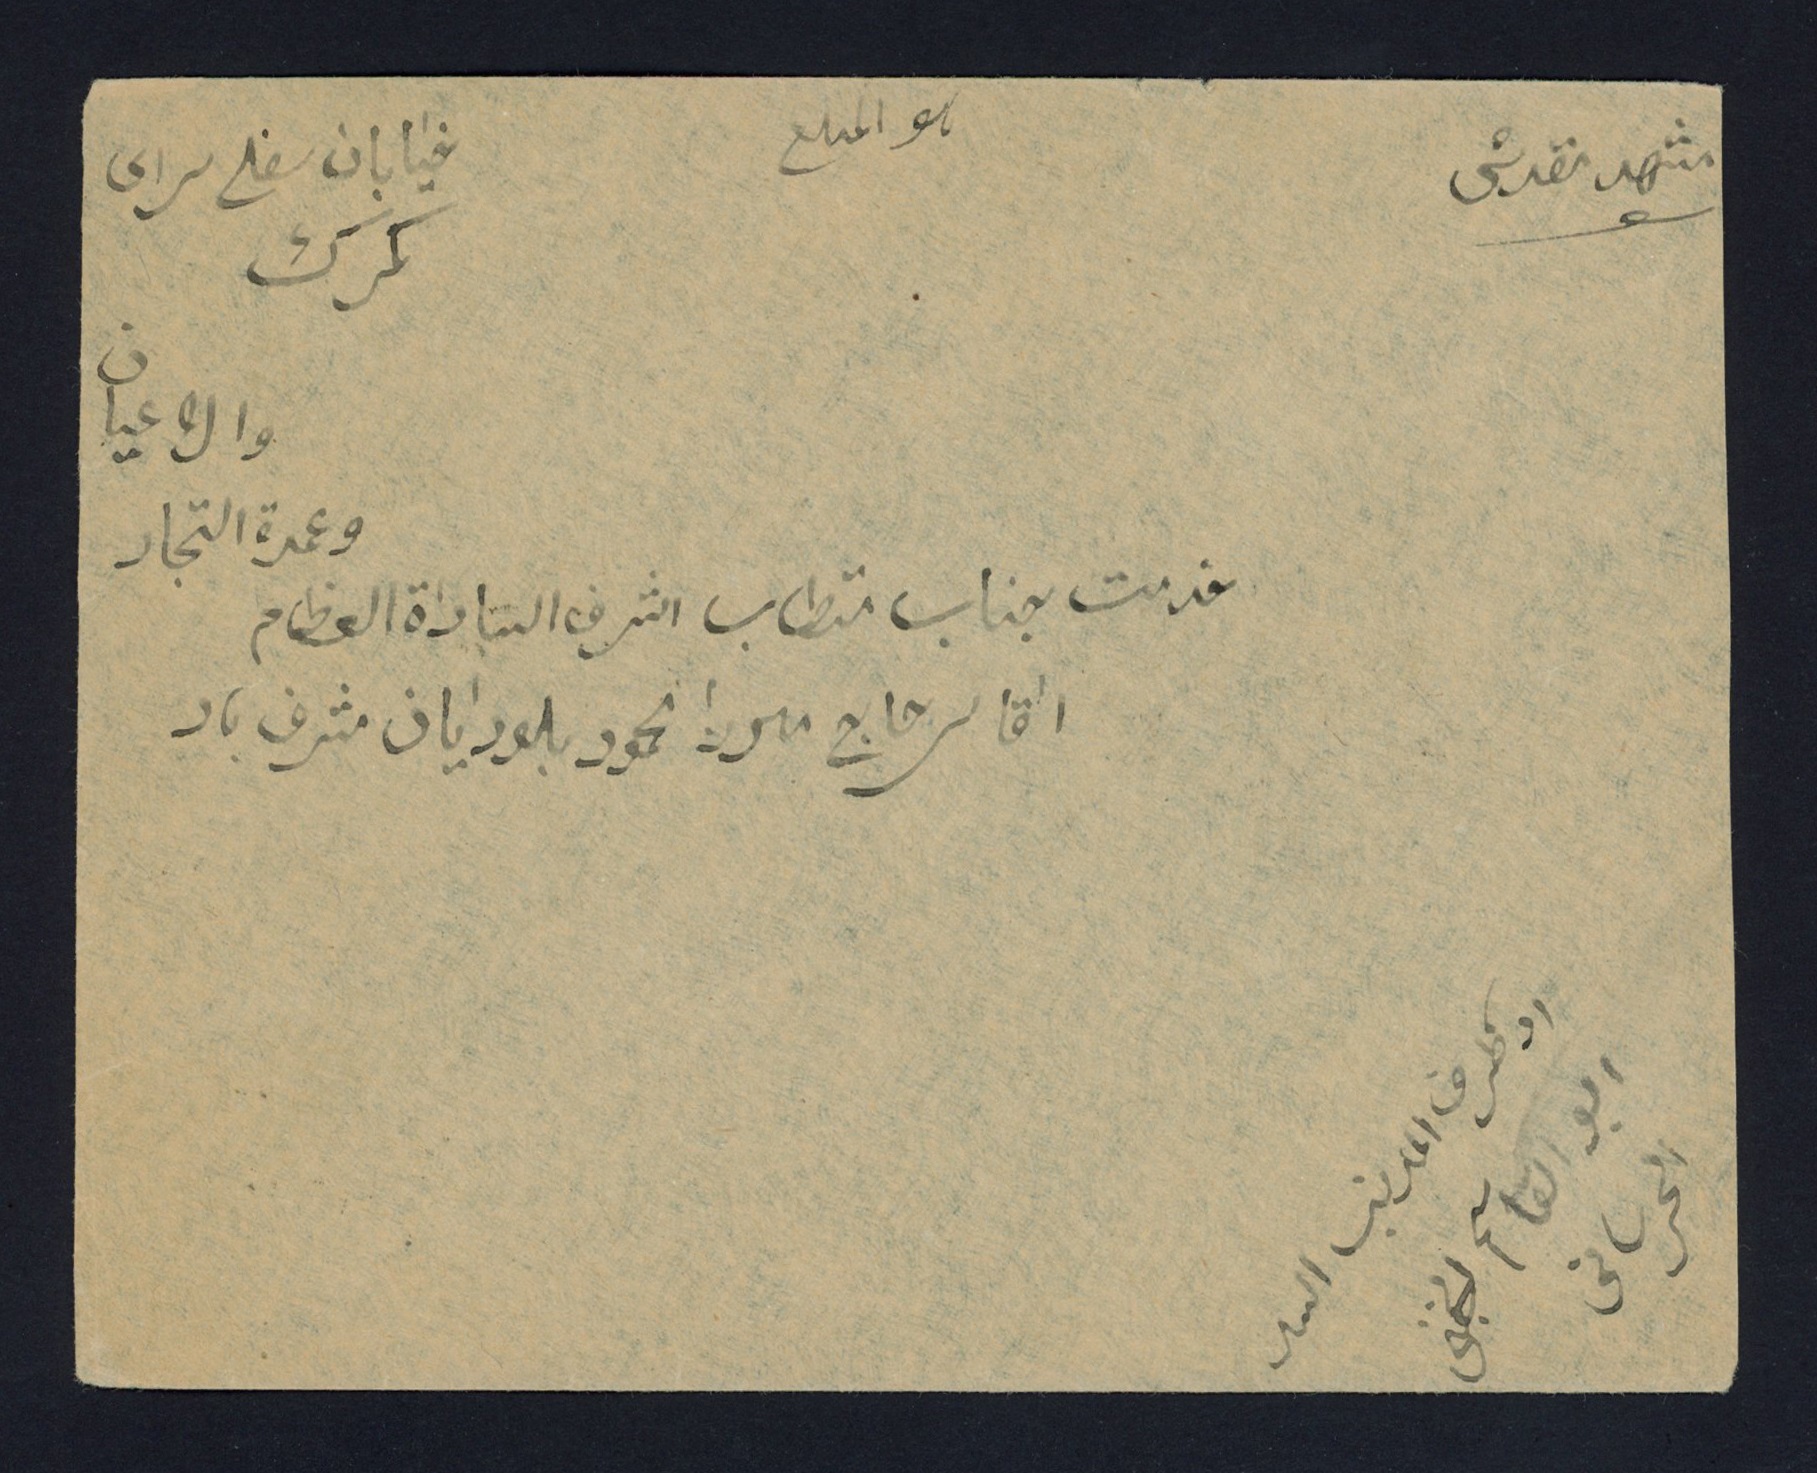 هو المبلغ
مشهد مقدس
خیابان سفلی سرای
گمرک
خدمت جناب مستطاب اشرف السادة العظام
وعمدة التجار
والاعیان
اقا حاج میرزا محمود بلورایان مشرف باد
از طرف السید
ابو القاسم النجفی
الخراسانی